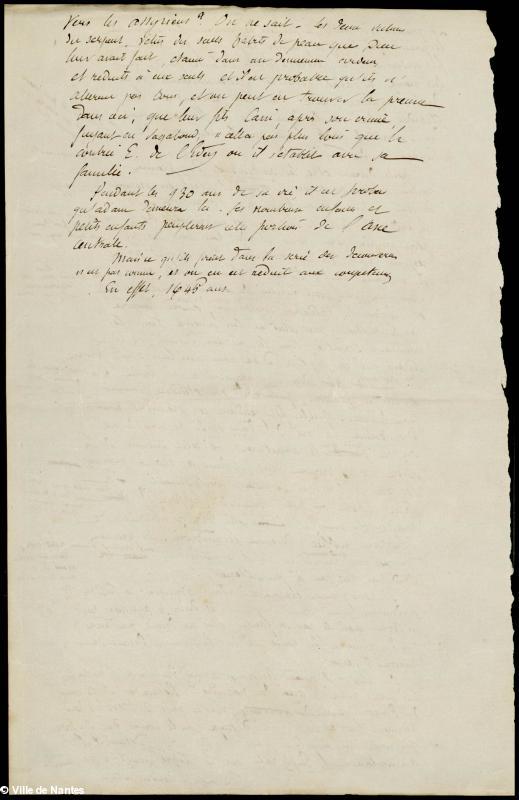 vers les assyriens ? On ne sait. les deux
du serpent, vêtus des seuls habits de peau que Dieu
leur avait fait, étant dans un dénuement
et réduits à eux seuls et d'un probable qu'ils n'
allèrent pas loin, et on peut en trouver la preuve
dans ceci ; que leur fils Caïn, après son crime
fuyant en vagabond, n'alla pas plus loin que la
contrée E. de l'Eden où il s'établit avec sa
famille.
Pendant les 930 ans de sa vie il est probable
qu'adam demeura là. ses nombreux enfants et
petits enfants peuplèrent cette portion de l'asie
Centrale.
Mais ce qu'ils dans la série des découvertes
n'est pas connu, et on en est réduit aux conjectures
En effet, 1645 ans
© Ville de Nantes